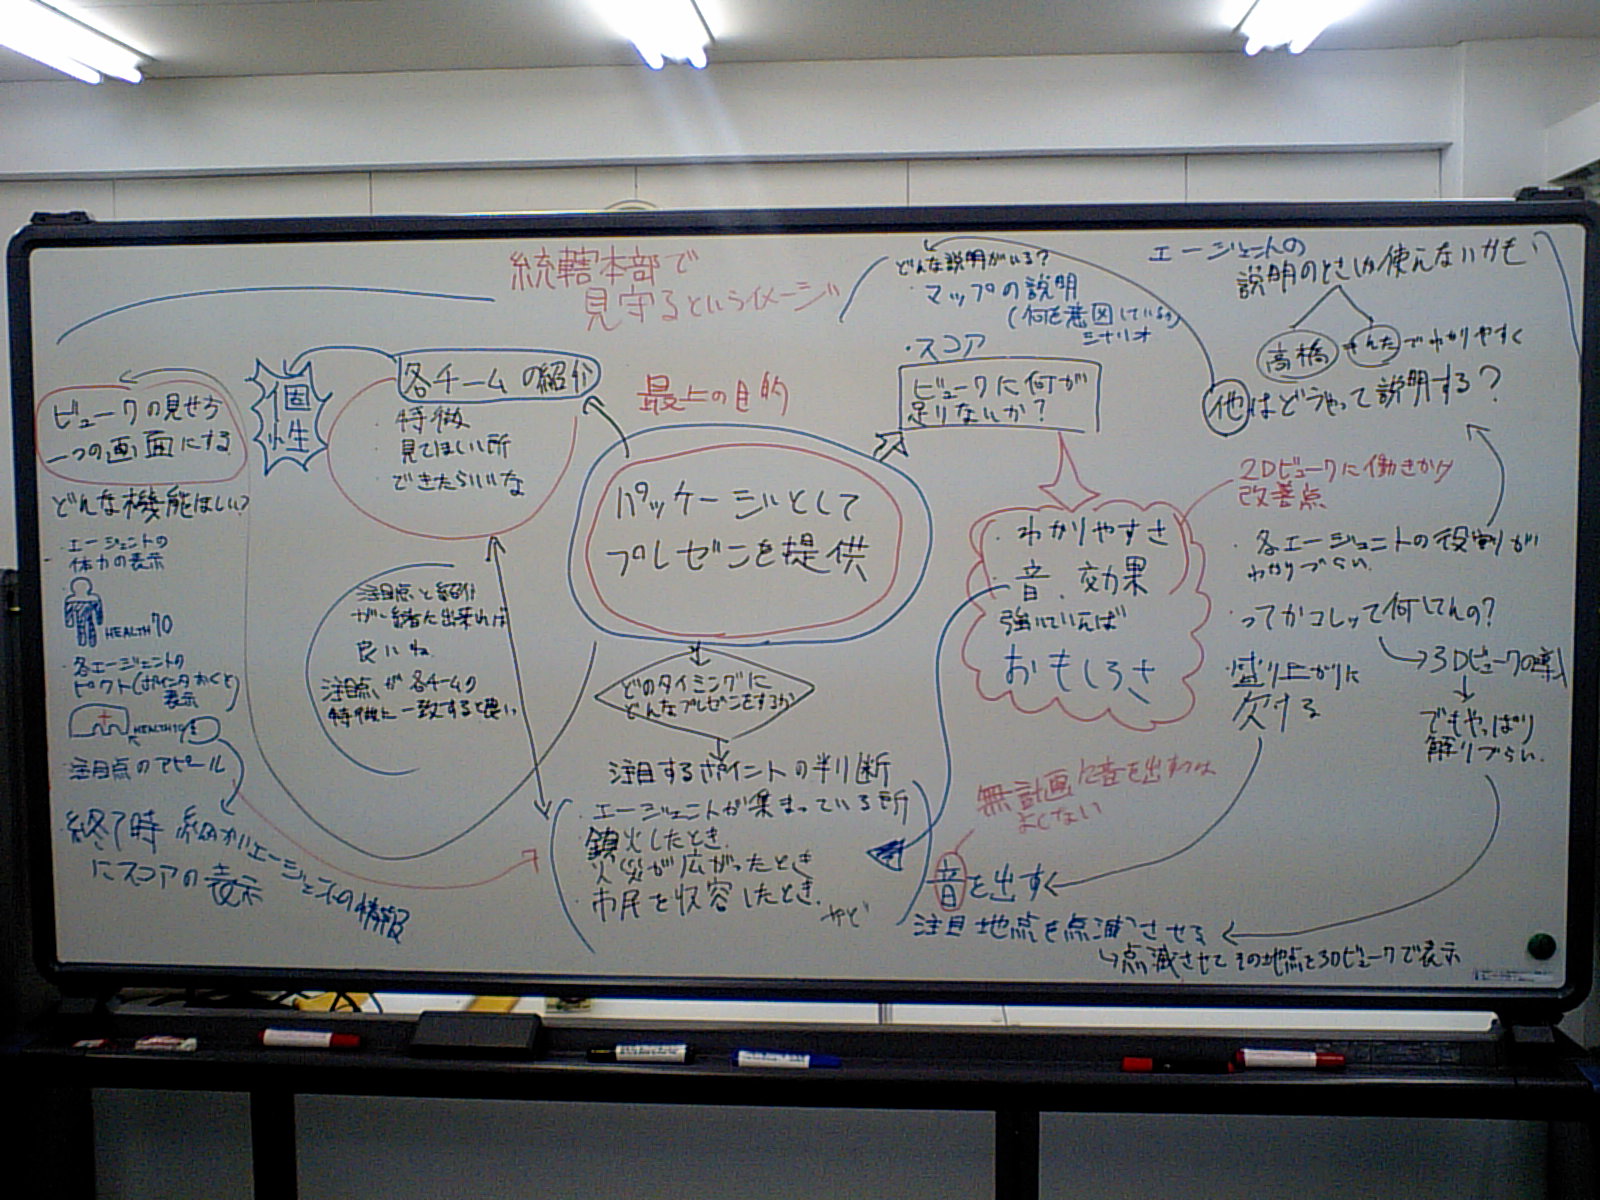 統轄本部で
見守るというイメージ
どんな説明がいる?
・マップの説明
(何を意図している
シナリオ
・スコア
エージェントの
説明のときしか使えないかも
高橋さんたちでわかりやすく
他はどうやって説明する?
ビューワの見せ方
一つの画面にする
個性
各チームの紹介
・特徴
・見てほしい所
・できたらいいな
最上の目的
ビューワに何が
足りないか?
パッケージとして
プレゼンを提供
どんな機能ほしい?
・エージェントの
体力の表示
HEALTH 70
・各エージェントの
ピクト(ポインタおくと)
表示
HEALTH
・注目点のアピール
・終了時
にスコアの表示
細かいエージェントの情報
注目点と紹介
が一緒に出来れば
良いね
注目点が各チームの
特徴に一致すると良い
どのタイミングに
どんなプレゼンをするか
注目するポイントの判断
・エージェントが集まっている所
・鎮火したとき
・火災が広がったとき
・市民を収容したとき
など
・わかりやすさ
・音、効果
強いていえば
おもしろさ
2Dビューワに働きかけ
改善点
・各エージェントの役割が
わかりづらい
・ってかコレって何してんの?
3Dビューワの導入
でもやっぱり
解りづらい
盛り上がりに
欠ける
無計画に音を出すのは
よくない
音を出す
注目地点を点滅させる
点滅させてその地点を3Dビューワで表示